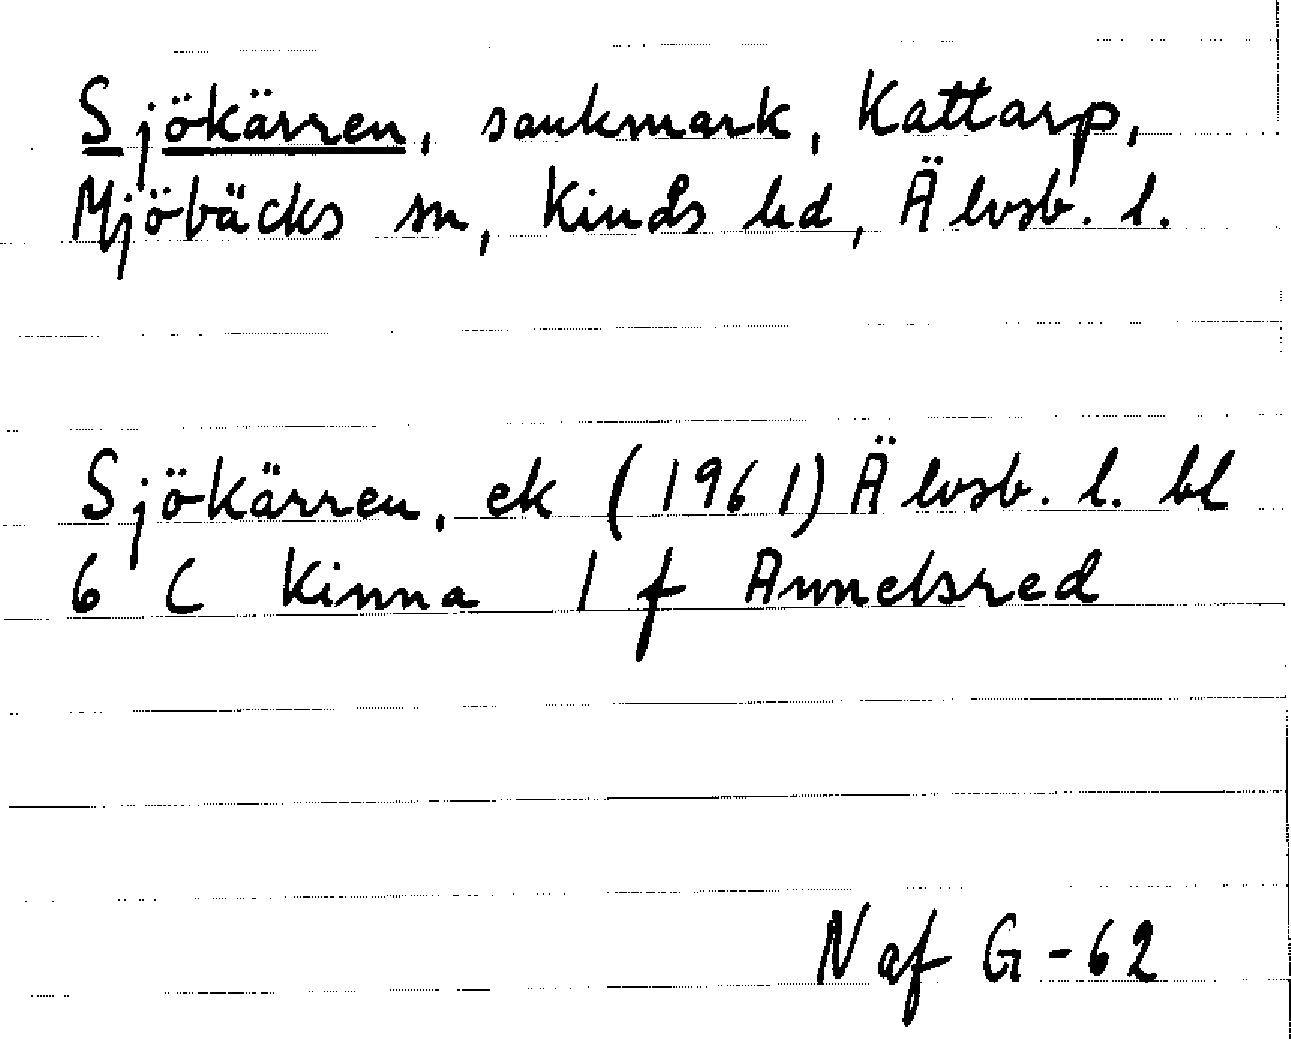 Sjökärren, sankmark, Kattarp,
Mjöbäcks sn, Kinds hd, Älvsb. l.
Sjökärren, ek (1961) Älvsb. l. bl
6 C Kinna 1 f Annelsred
N af G-62